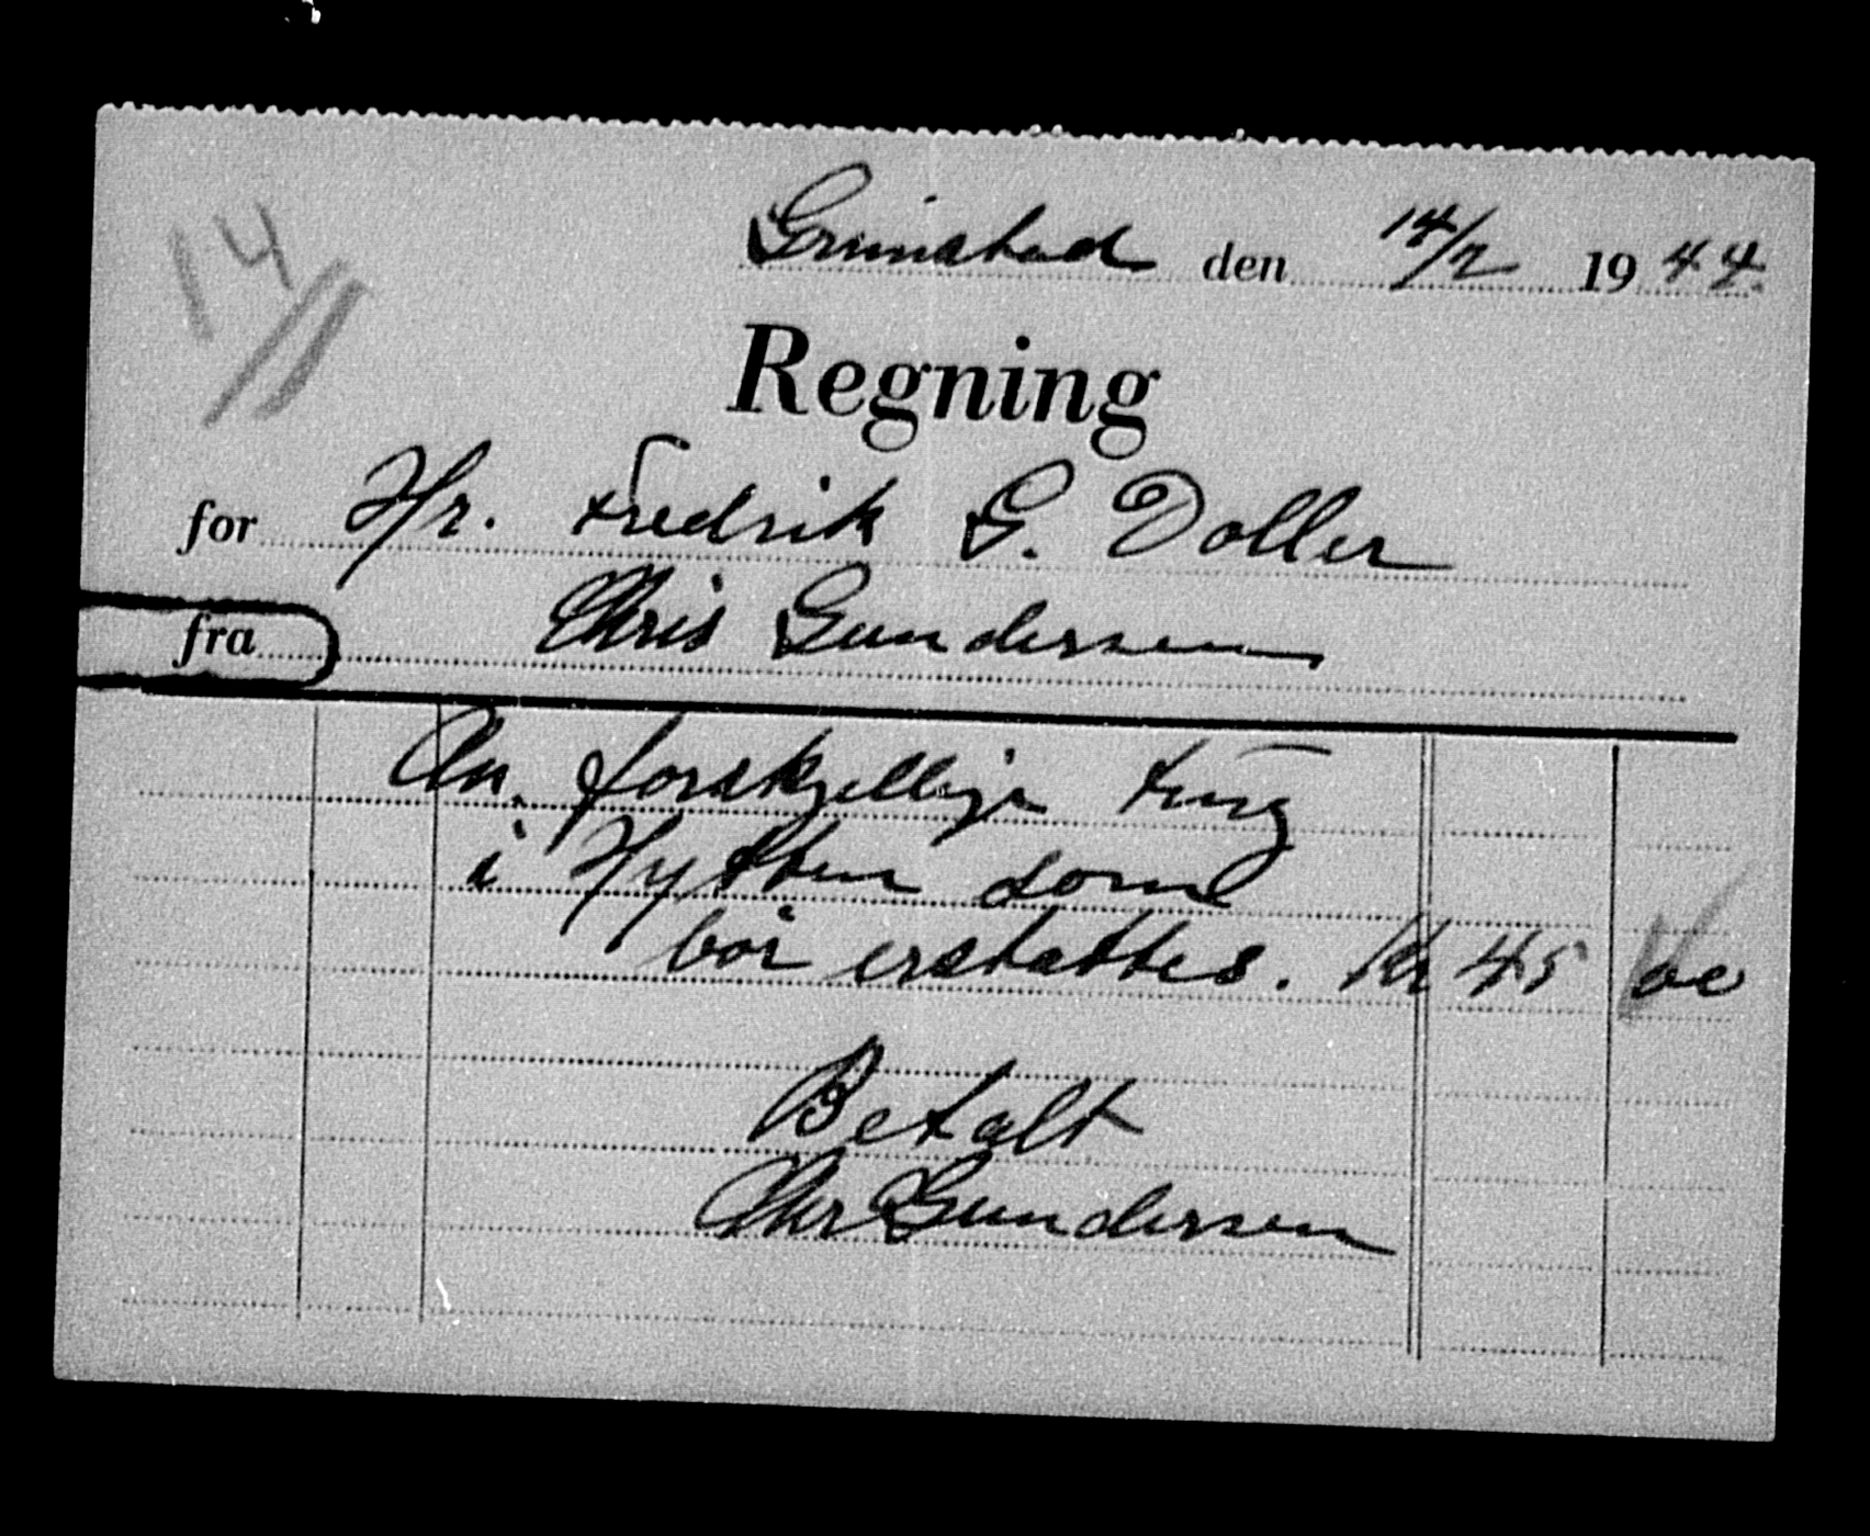 Grimstad den 14/2 1944.
14//
Regning
for Hr. Fredrik G. Doller
fra Chris Gundersen
An. forskjellige ting
i Hytten som
bör erstattes. Kr 45 oo
Betalt
Chr Gundersen